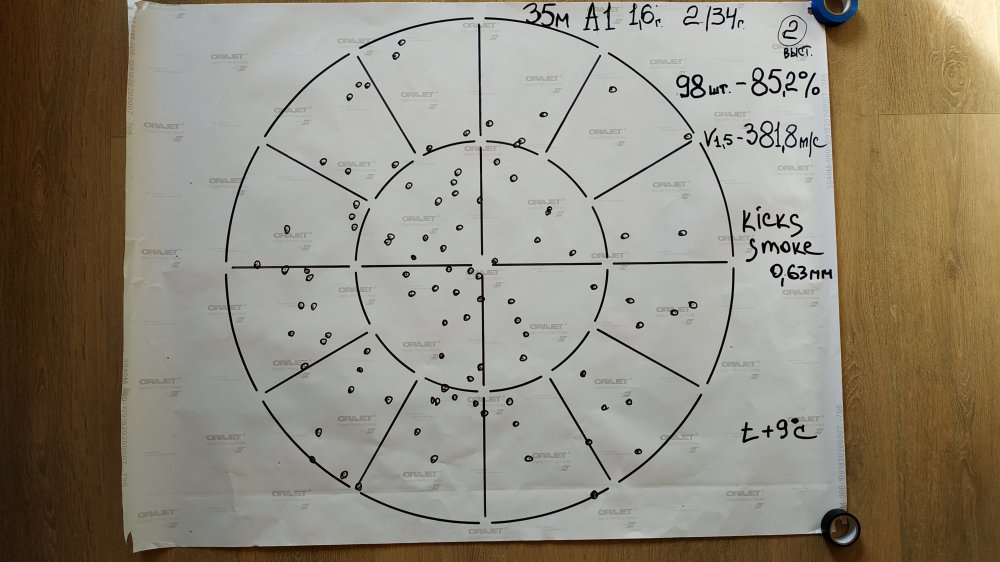 35м A1 1,6г. 2/34г.
2
выст.
98 шт. - 85,2%
V1,5 - 381,8 м/с
Kicks
smoke
0,63 мм
t +9°c
ORAJET